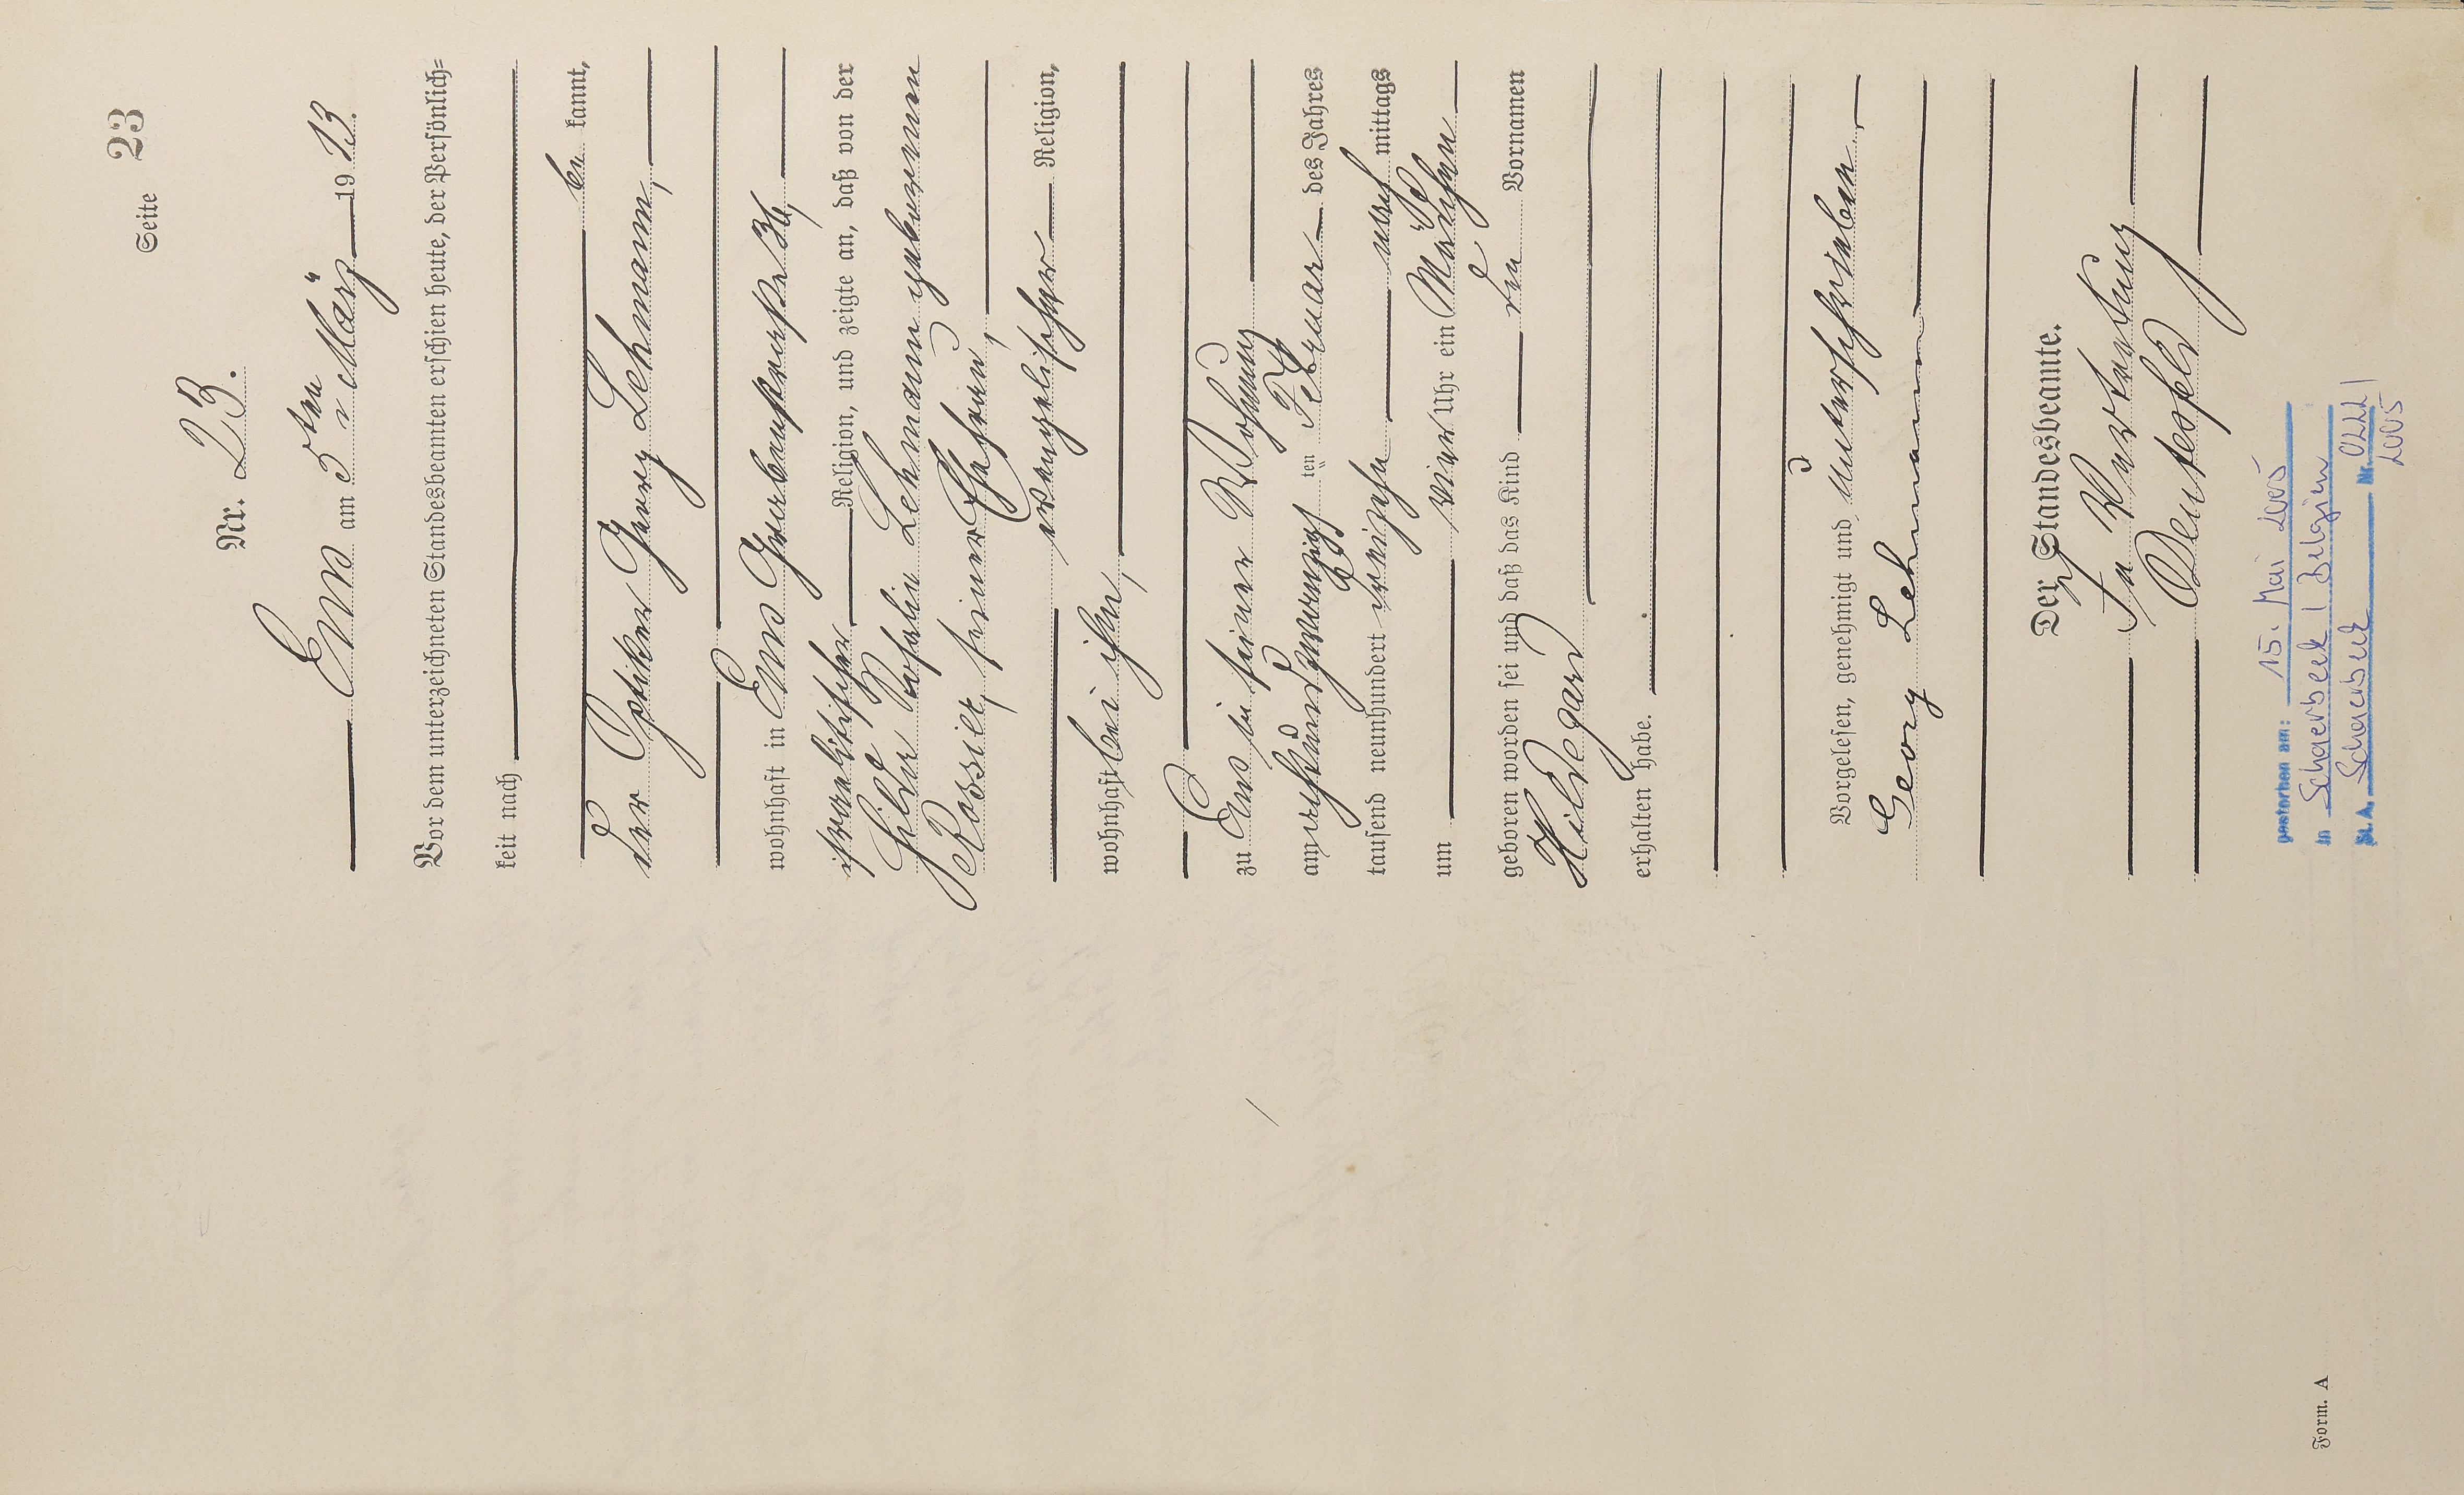 Seite 23
Nr. 23.
Ems am 5ten März 1913.
Vor dem unterzeichneten Standesbeamten erschien heute, der Persönlich=
keit nach
be kannt,
der Optiker Georg Lehmann,
wohnhaft in Ems Grabenstraße 36,
israelitischer Religion, und zeigte an, daß von der
Hilda Rosalie Lehmann geborenen
Perossilt, seiner Ehefrau,
evangelischer Religion,
wohnhaft bei ihm,
zu Ems in seiner Wohnung
am achtundzwanzigsten Februar des Jahres
tausend neunhundert dreizehn nach mittags
um vier Uhr ein Mädchen
geboren worden sei und daß das Kind den Vornamen
Hildegard
erhalten habe.
Vorgelesen, genehmigt und unterschrieben
Georg Lehmann
Der Standesbeamte.
In Vertretung
gestorben am: 15. Mai 2005
in Schaerbeek / Belgien
St. A. Schaerbeek Nr.
2005
Form. A